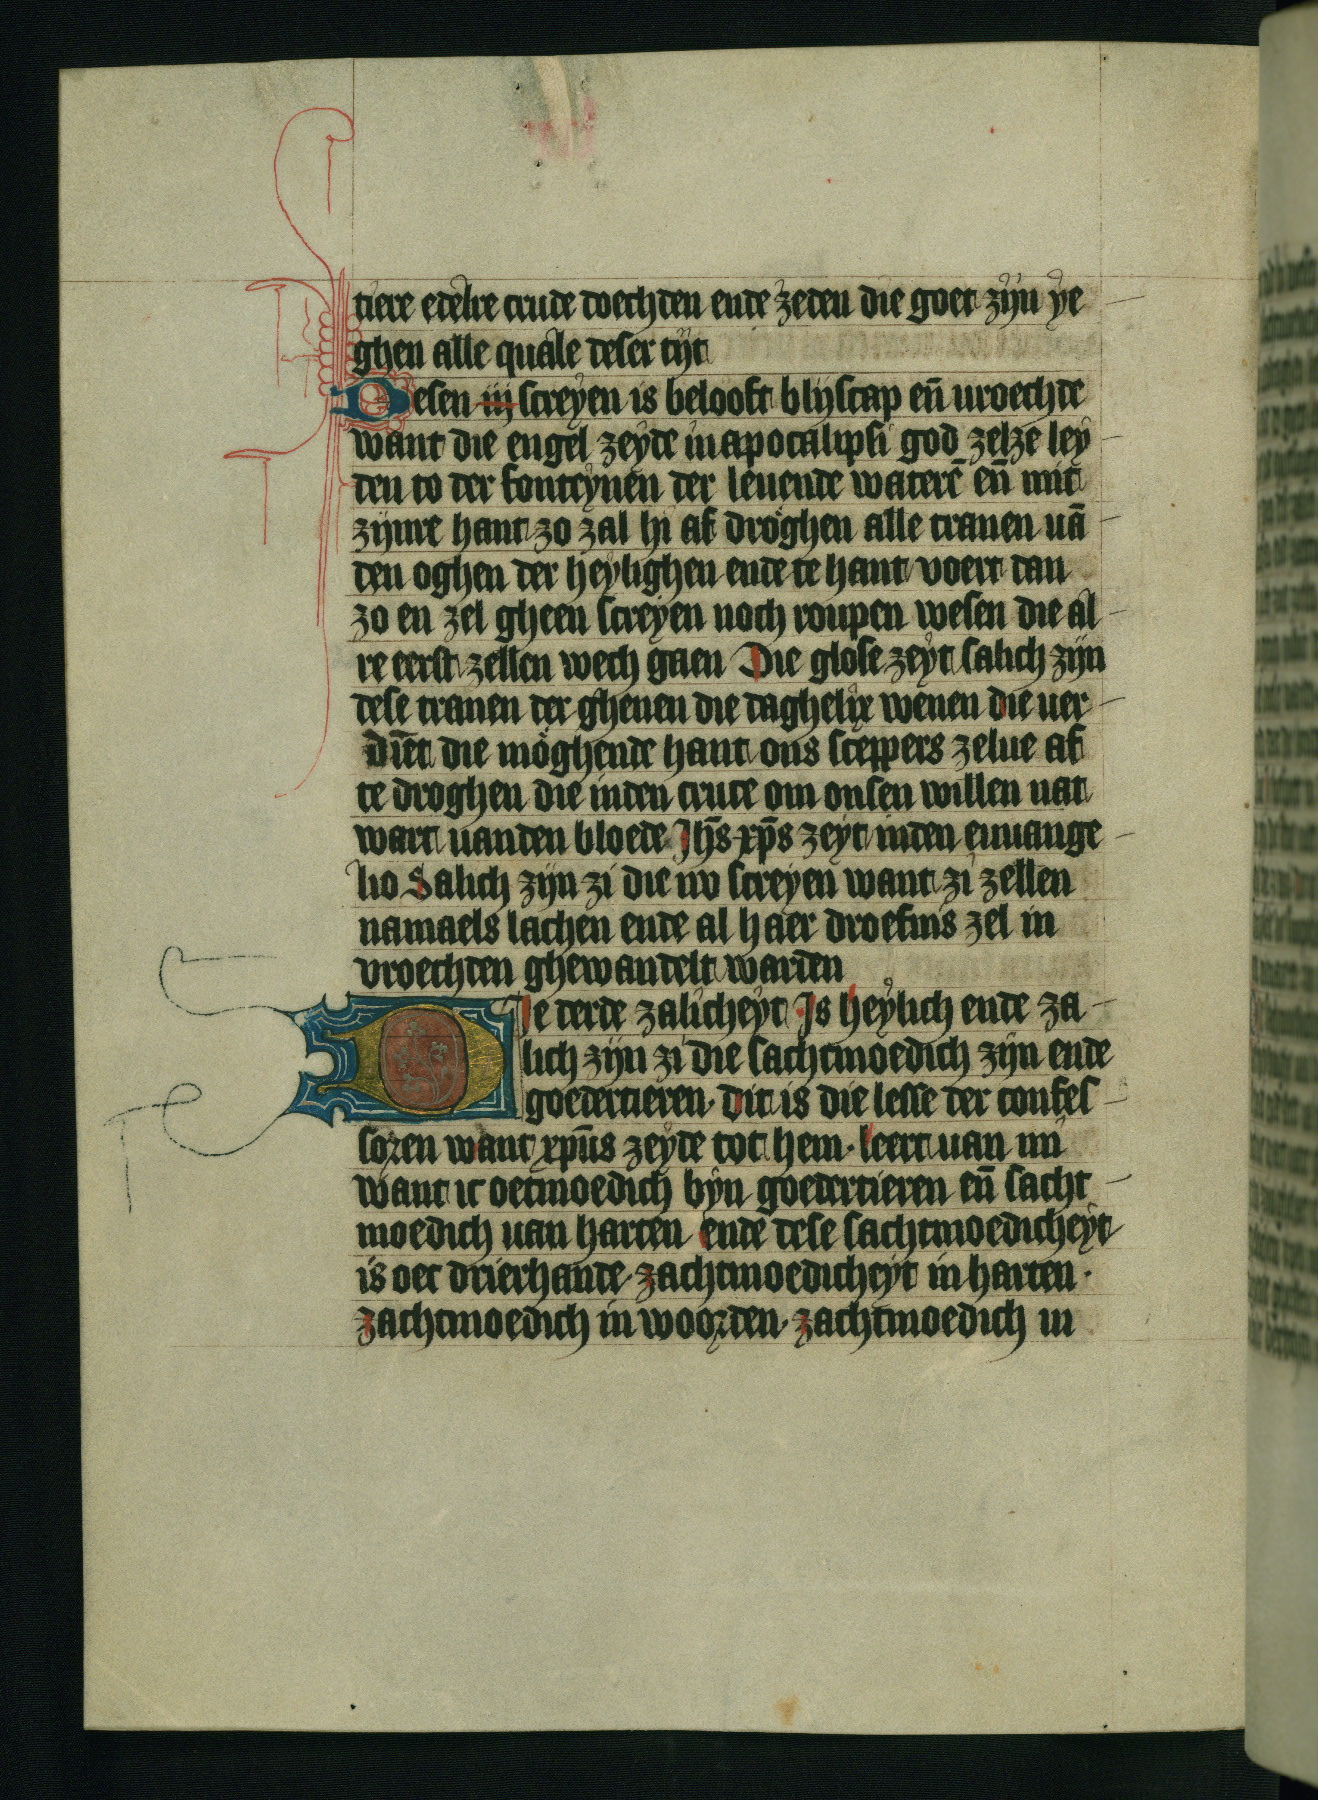 tiere edelre crude doechden ende zeden die goet zijn ye
ghen alle quale deser tijt
Desen iij screyen is belooft blijscap eñ vroechde
want die engel zeyde in apocalipsi god zelze ley
den to der fonteynen der leuende waterē eñ mit
zijnre hant zo zal hi af droghen alle tranen uā
den oghen der heylighen ende te hant voert dan
zo en zel gheen screyen noch roupen wesen die al
re eerst zellen wech gaen Die glose zeyt salich zijn
dese tranen der ghenen die daghelix wenen die uer
diēt die moghende hant ons sceppers zelue af
te droghen die inden cruce om onsen willen nat
wart uanden bloede Jhs̄ xps̄ zeyt inden euuange
lio Salich zijn zi die nv screyen want zi zellen
namaels lachen ende al haer droefnis zel in
vroechden ghewandelt warden
Die derde zalicheyt Js heylich ende za
lich zijn zi die sachtmoedich zijn ende
goedertieren· dit is die lesse der confes
soren want xpūs zeyde tot hem· leert uan mi
want ic oetmoedich byn goedertieren eñ sacht
moedich uan harten ende dese sachtmoedicheyt
is oec drierhande· zachtmoedicheyt in harten·
zachtmoedich in woorden· zachtmoedich in